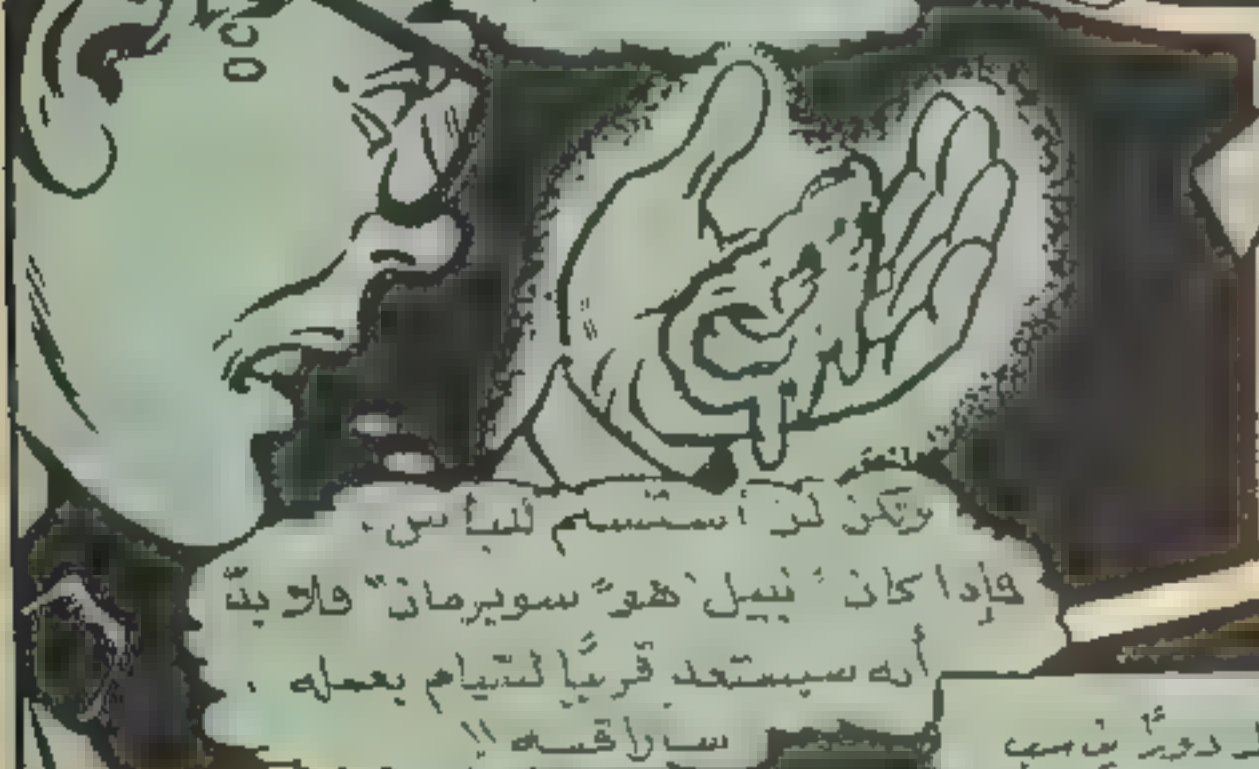 ولكن لن أستسلم لليأس .
فإذا كان " نبيل " هو " سوبرمان " فلا بدّ
أنه سيستعد قريبًا للقيام بعمله .
سأراقبه !!